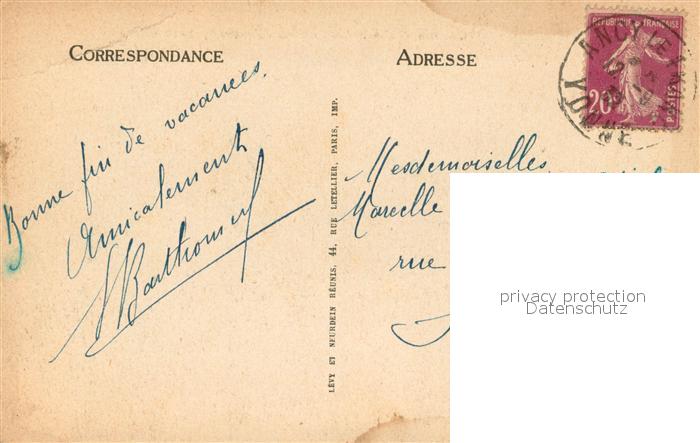 CORRESPONDANCE
ADRESSE
RÉPUBLIQUE FRANÇAISE
20
POSTES
ANCY LE
YONNE
Bonne fin de vacances.
Amicalement
LÉVY ET NEURDEIN RÉUNIS, 44, RUE LETELLIER, PARIS, IMP.
Mesdemoiselles
Marcelle
rue
privacy protection
Datenschutz